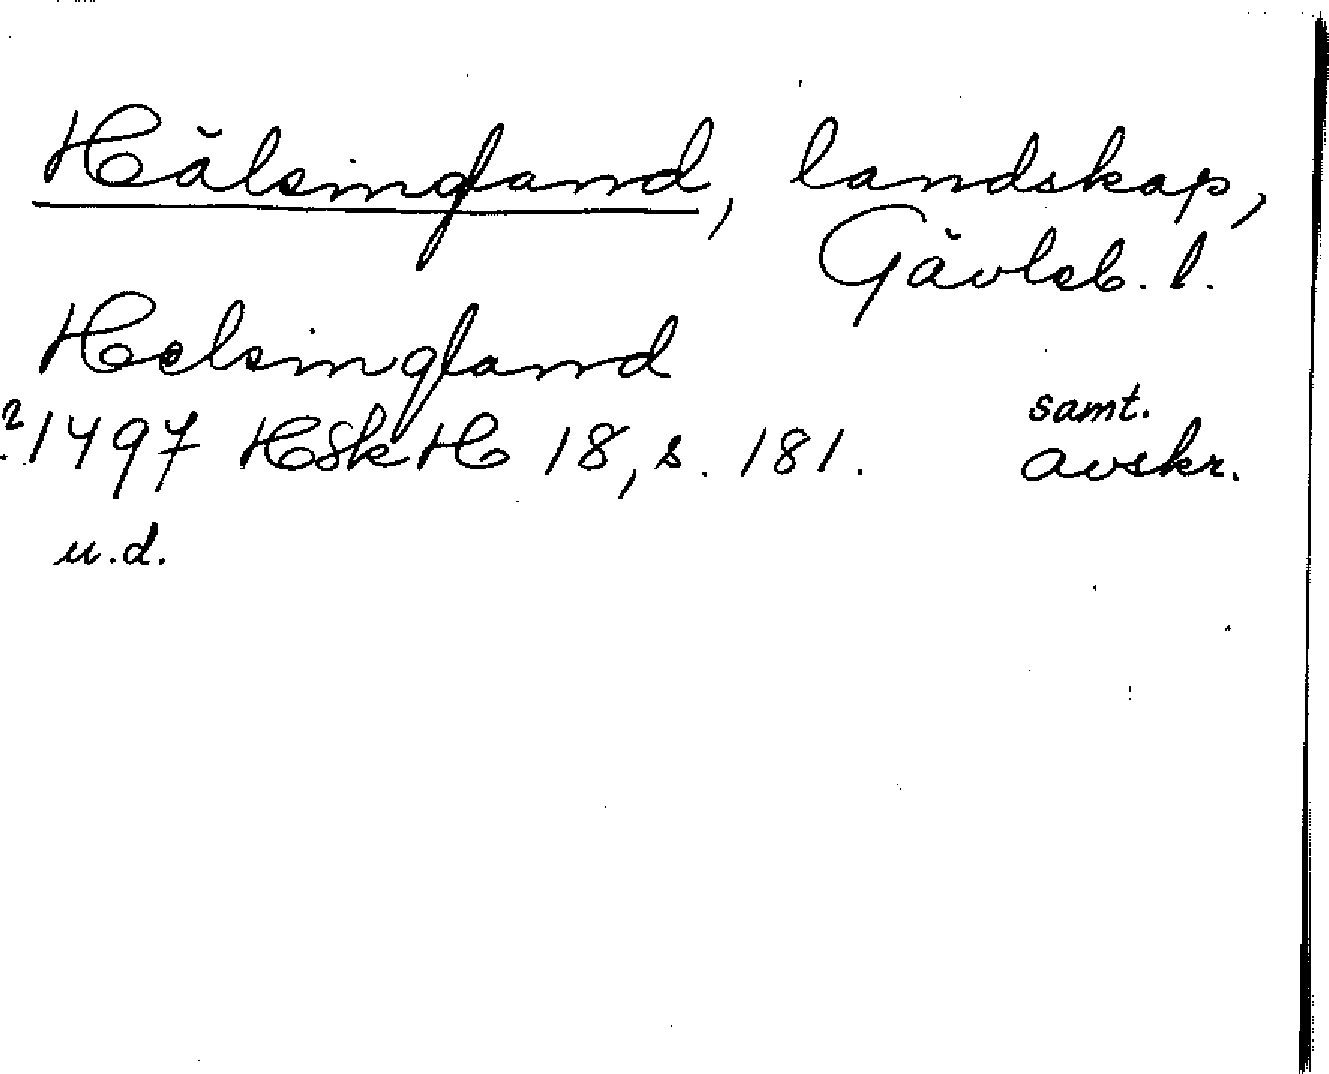 Hälsingland, landskap,
Gävleb. l.
Helsingland
? 1497 HSkH 18, s. 181. samt. avskr.
u.d.